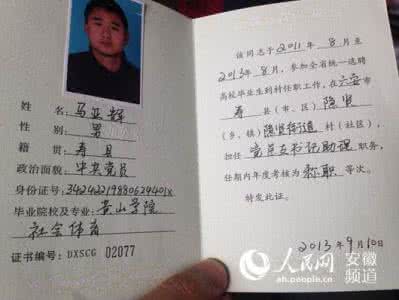 姓名:马亚辉
性别:男
籍贯:寿县
政治面貌:中共党员
身份证号:34242219880624401X
毕业院校及专业:黄山学院
社会体育
证书编号:DXSCG 02077
该同志于2011年8月至
2013年8月,参加全省统一选聘
高校毕业生到村任职工作,在六安市
寿县(市、区)隐贤
(乡、镇)隐贤街道村(社区),
担任党总支书记助理职务,
任期内年度考核为称职等次。
特发此证。
2013年9月10日
人民网 安徽频道
ah.people.com.cn